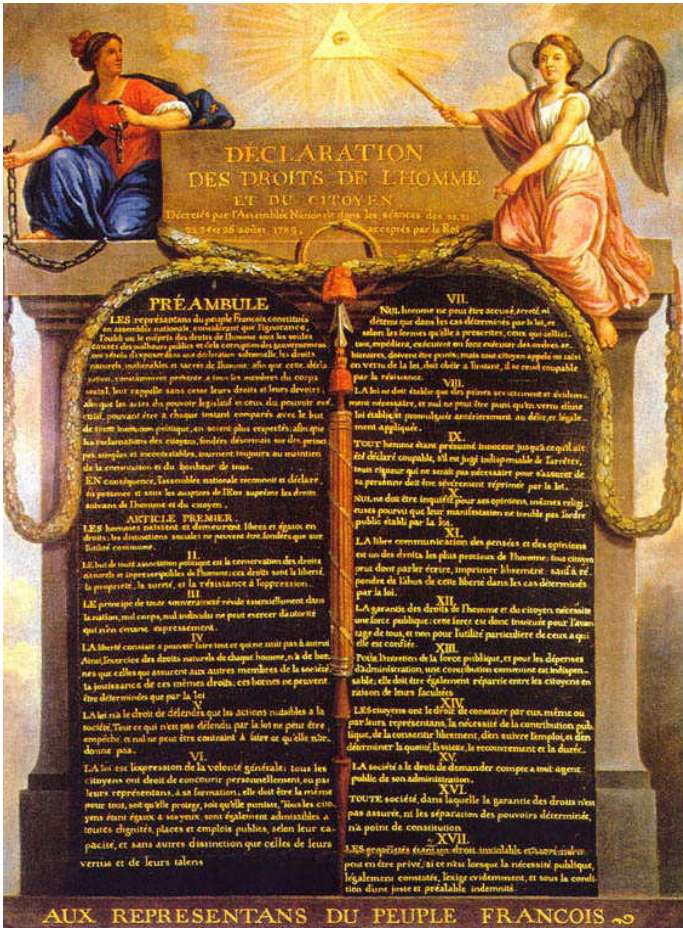 DÉCLARATION
DES DROITS DE L'HOMME
ET DU CITOYEN
Décretés par l'Assemblée Nationale dans les séances des 20, 21
23, 24 et 26 août 1789, acceptés par le Roi
PRÉAMBULE
LES représentans du peuple François constitués
en assemblée nationale, considérant que l'ignorance,
l'oubli ou le mépris des droits de l'homme sont les seules
causes des malheurs publics et de la corruption des gouvernemens
ont résolu d'exposer dans une déclaration solemnelle, les droits
naturels, inaliénables et sacrés de l'homme: afin que cette décla
ration, constamment présente a tous les membres du corps
social, leur rappelle sans cesse leurs droits et leurs devoirs;
afin que les actes du pouvoir législatif et ceux du pouvoir exé
cutif, pouvant être a chaque instant comparés avec le but
de toute institution politique, en soient plus respectés; afin que
les réclamations des citoyens, fondées désormais sur des princi
pes simples et incontestables, tournent toujours au maintien
de la constitution et du bonheur de tous.
EN conséquence, l'assemblée nationale reconnoit et déclare
en presence et sous les auspices de l'Etre suprême les droits
suivans de l'homme et du citoyen.
ARTICLE PREMIER.
LES hommes naissent et demeurent libres et égaux en
droits; les distinctions sociales ne peuvent être fondées que sur
l'utilité commune.
II.
LE but de toute association politique est la conservation des droits
naturels et imprescriptibles de l'homme; ces droits sont la liberté,
la propriété, la sureté, et la résistance à l'oppression.
III
LE principe de toute souveraineté réside essentiellement dans
la nation, nul corps, nul individu ne peut exercer d'autorité
qui n'en émane expressément.
IV
LA liberté consiste a pouvoir faire tout ce qui ne nuit pas à autrui
Ainsi, l'exercice des droits naturels de chaque homme, n'a de bor
nes que celles qui assurent aux autres membres de la société
la jouissance de ces mêmes droits; ces bornes ne peuvent
être déterminées que par la loi
V
LA loi n'a le droit de défendre que les actions nuisibles à la
société. Tout ce qui n'est pas défendu par la loi ne peut être
empêché, et nul ne peut être contraint à faire ce qu'elle n'or
donne pas.
VI.
LA loi est l'expression de la volonté générale; tous les
citoyens ont droit de concourir personnellement, ou par
leurs représentans, à sa formation; elle doit être la même
pour tous, soit qu'elle protege, soit qu'elle punisse. Tous les cito
yens étant égaux à ses yeux, sont également admissibles a
toutes dignités, places et emplois publics, selon leur ca
pacité, et sans autres distinction que celles de leurs
vertus et de leurs talens
VII.
NUL homme ne peut être accusé, arreté, ni
détenu que dans les cas déterminés par la loi, et
selon les formes qu'elle a prescrites, ceux qui sollici
tent, expédient, exécutent ou font exécuter des ordres ar
bitraires, doivent être punis; mais tout citoyen appelé ou saisi
en vertu de la loi, doit obéir a l'instant, il se rend coupable
par la résistance.
VIII.
LA loi ne doit établir que des peines strictement et évidem
ment nécessaire, et nul ne peut être puni qu'en vertu d'une
loi établie et promulguée antérierement au délit, et légale
ment appliquée.
IX.
TOUT homme étant présumé innocent jusqu'à ce qu'il ait
été déclaré coupable, s'il est jugé indispensable de l'arrêter,
toute rigueur qui ne serait pas nécessaire pour s'assurer de
sa personne doit être sévèrement réprimée par la loi.
X.
NUL ne doit être inquiété pour ses opinions, mêmes religi
euses pourvu que leur manifestation ne trouble pas l'ordre
public établi par la loi.
XI.
LA libre communication des pensées et des opinions
est un des droits les plus precieux de l'homme: tout citoyen
peut donc parler écrire, imprimer librement: sauf à ré
pondre de l'abus de cette liberté dans les cas déterminés
par la loi.
XII.
LA garantie des droits de l'homme et du citoyen nécessite
une force publique: cette force est donc instituée pour l'avan
tage de tous, et non pour l'utilité particuliere de ceux a qui
elle est confiée.
XIII.
Pour l'entretien de la force publique, et pour les dépenses
d'administration, une contribution commune est indispen
sable; elle doit être également répartie entre les citoyens en
raison de leurs facultées
XIV.
LES citoyens ont le droit de constater par eux même ou
par leurs représentans, la nécessité de la contribution pub
lique, de la consentir librement, d'en suivre l'emploi, et d'en
déterminer la quotité, l'assiette, le recouvrement et la durée.
XV.
LA société a le droit de demander compte a tout agent
public de son administration.
XVI.
TOUTE société, dans laquelle la garantie des droits n'est
pas assurée, ni les séparation des pouvoirs déterminée,
n'a point de constitution
XVII.
LES propriétés étant un droit inviolable et sacré, nul ne
peut en être privé, si ce n'est lorsque la nécessité publique,
légalement constatée, l'exige evidemment, et sous la condi
tion d'une juste et préalable indemnité.
AUX REPRESENTANS DU PEUPLE FRANCOIS